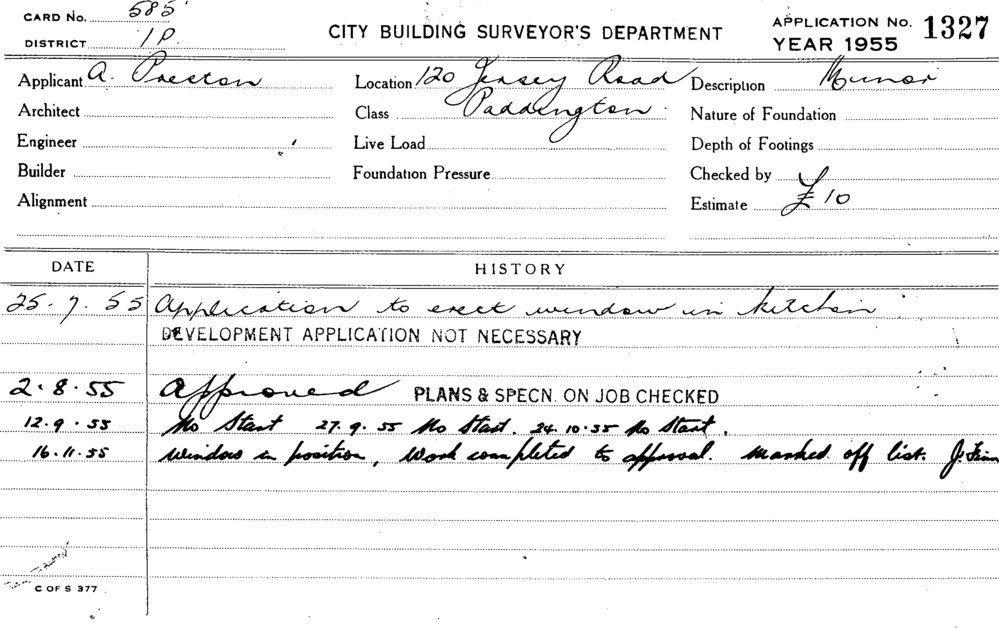 CARD No. 585
DISTRICT 1P.
CITY BUILDING SURVEYOR'S DEPARTMENT
APPLICATION No. 1327
YEAR 1955
Applicant A. Preston Location 120 Jersey Road Description Minor
Architect Class Paddington. Nature of Foundation
Engineer Live Load Depth of Footings
Builder Foundation Pressure Checked by
Alignment Estimate £10
DATE HISTORY
25.7.55 Application to erect window in kitchen
DEVELOPMENT APPLICATION NOT NECESSARY
2.8.55 Approved PLANS & SPECN. ON JOB CHECKED
12.9.55 No Start 27.9.55 No Start. 24.10.55 No Start.
16.11.55 Window in position, Work completed to approval. Marked off list. J.
C OF S 377